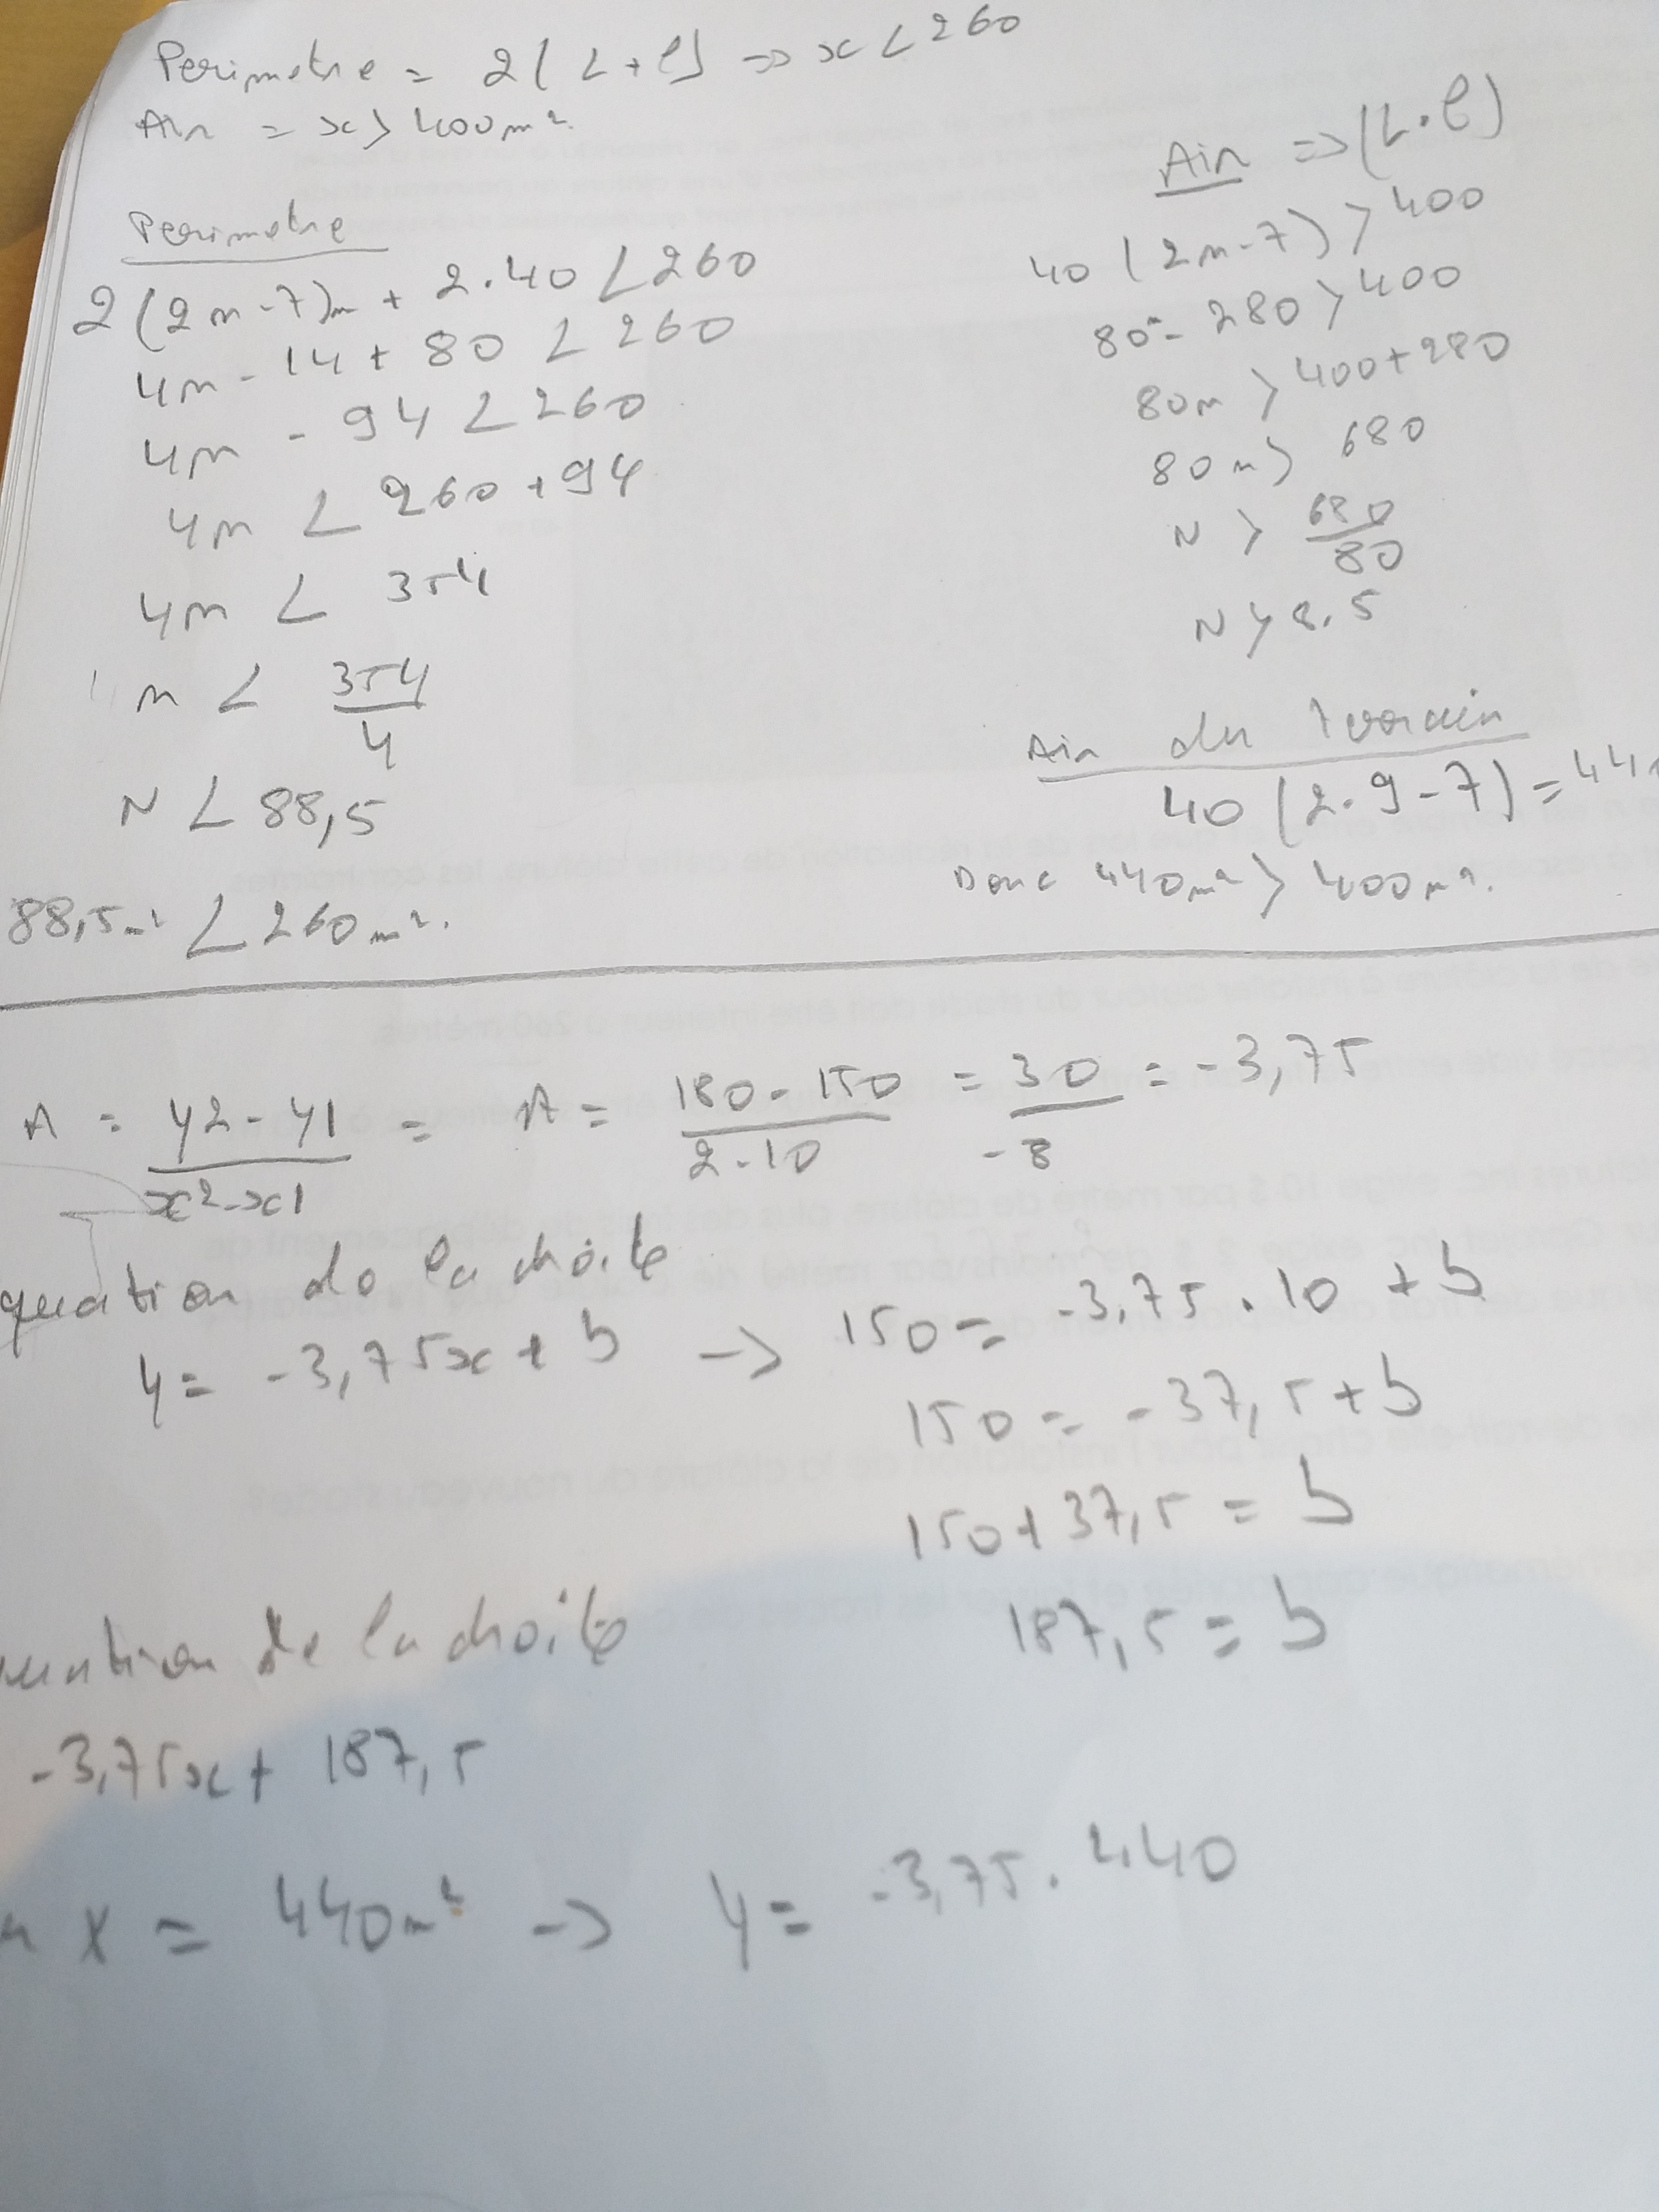 Perimetre = 2(L+l) => x < 260
Air = x > 400m²
Perimetre
2(2n-7)m + 2.40 < 260
4n - 14 + 80 < 260
4n - 94 < 260
4n < 260 + 94
4n < 354
n < 354/4
N < 88,5
88,5m² < 260m².
Air => (L.l)
40(2n-7) > 400
80n - 280 > 400
80n > 400+280
80n > 680
N > 680/80
N > 8.5
Air du terrain
40(2.9-7) = 44
Donc 440m² > 400m².
A = y2-y1/x2-x1 = A = 180-150/2-10 = 30/-8 = -3,75
quation de la droite
y = -3,75x + b -> 150 = -3,75 . 10 + b
150 = -37,5 + b
150+37,5 = b
187,5 = b
uation de la droite
-3,75x + 187,5
x = 440m² -> y = -3,75 . 440